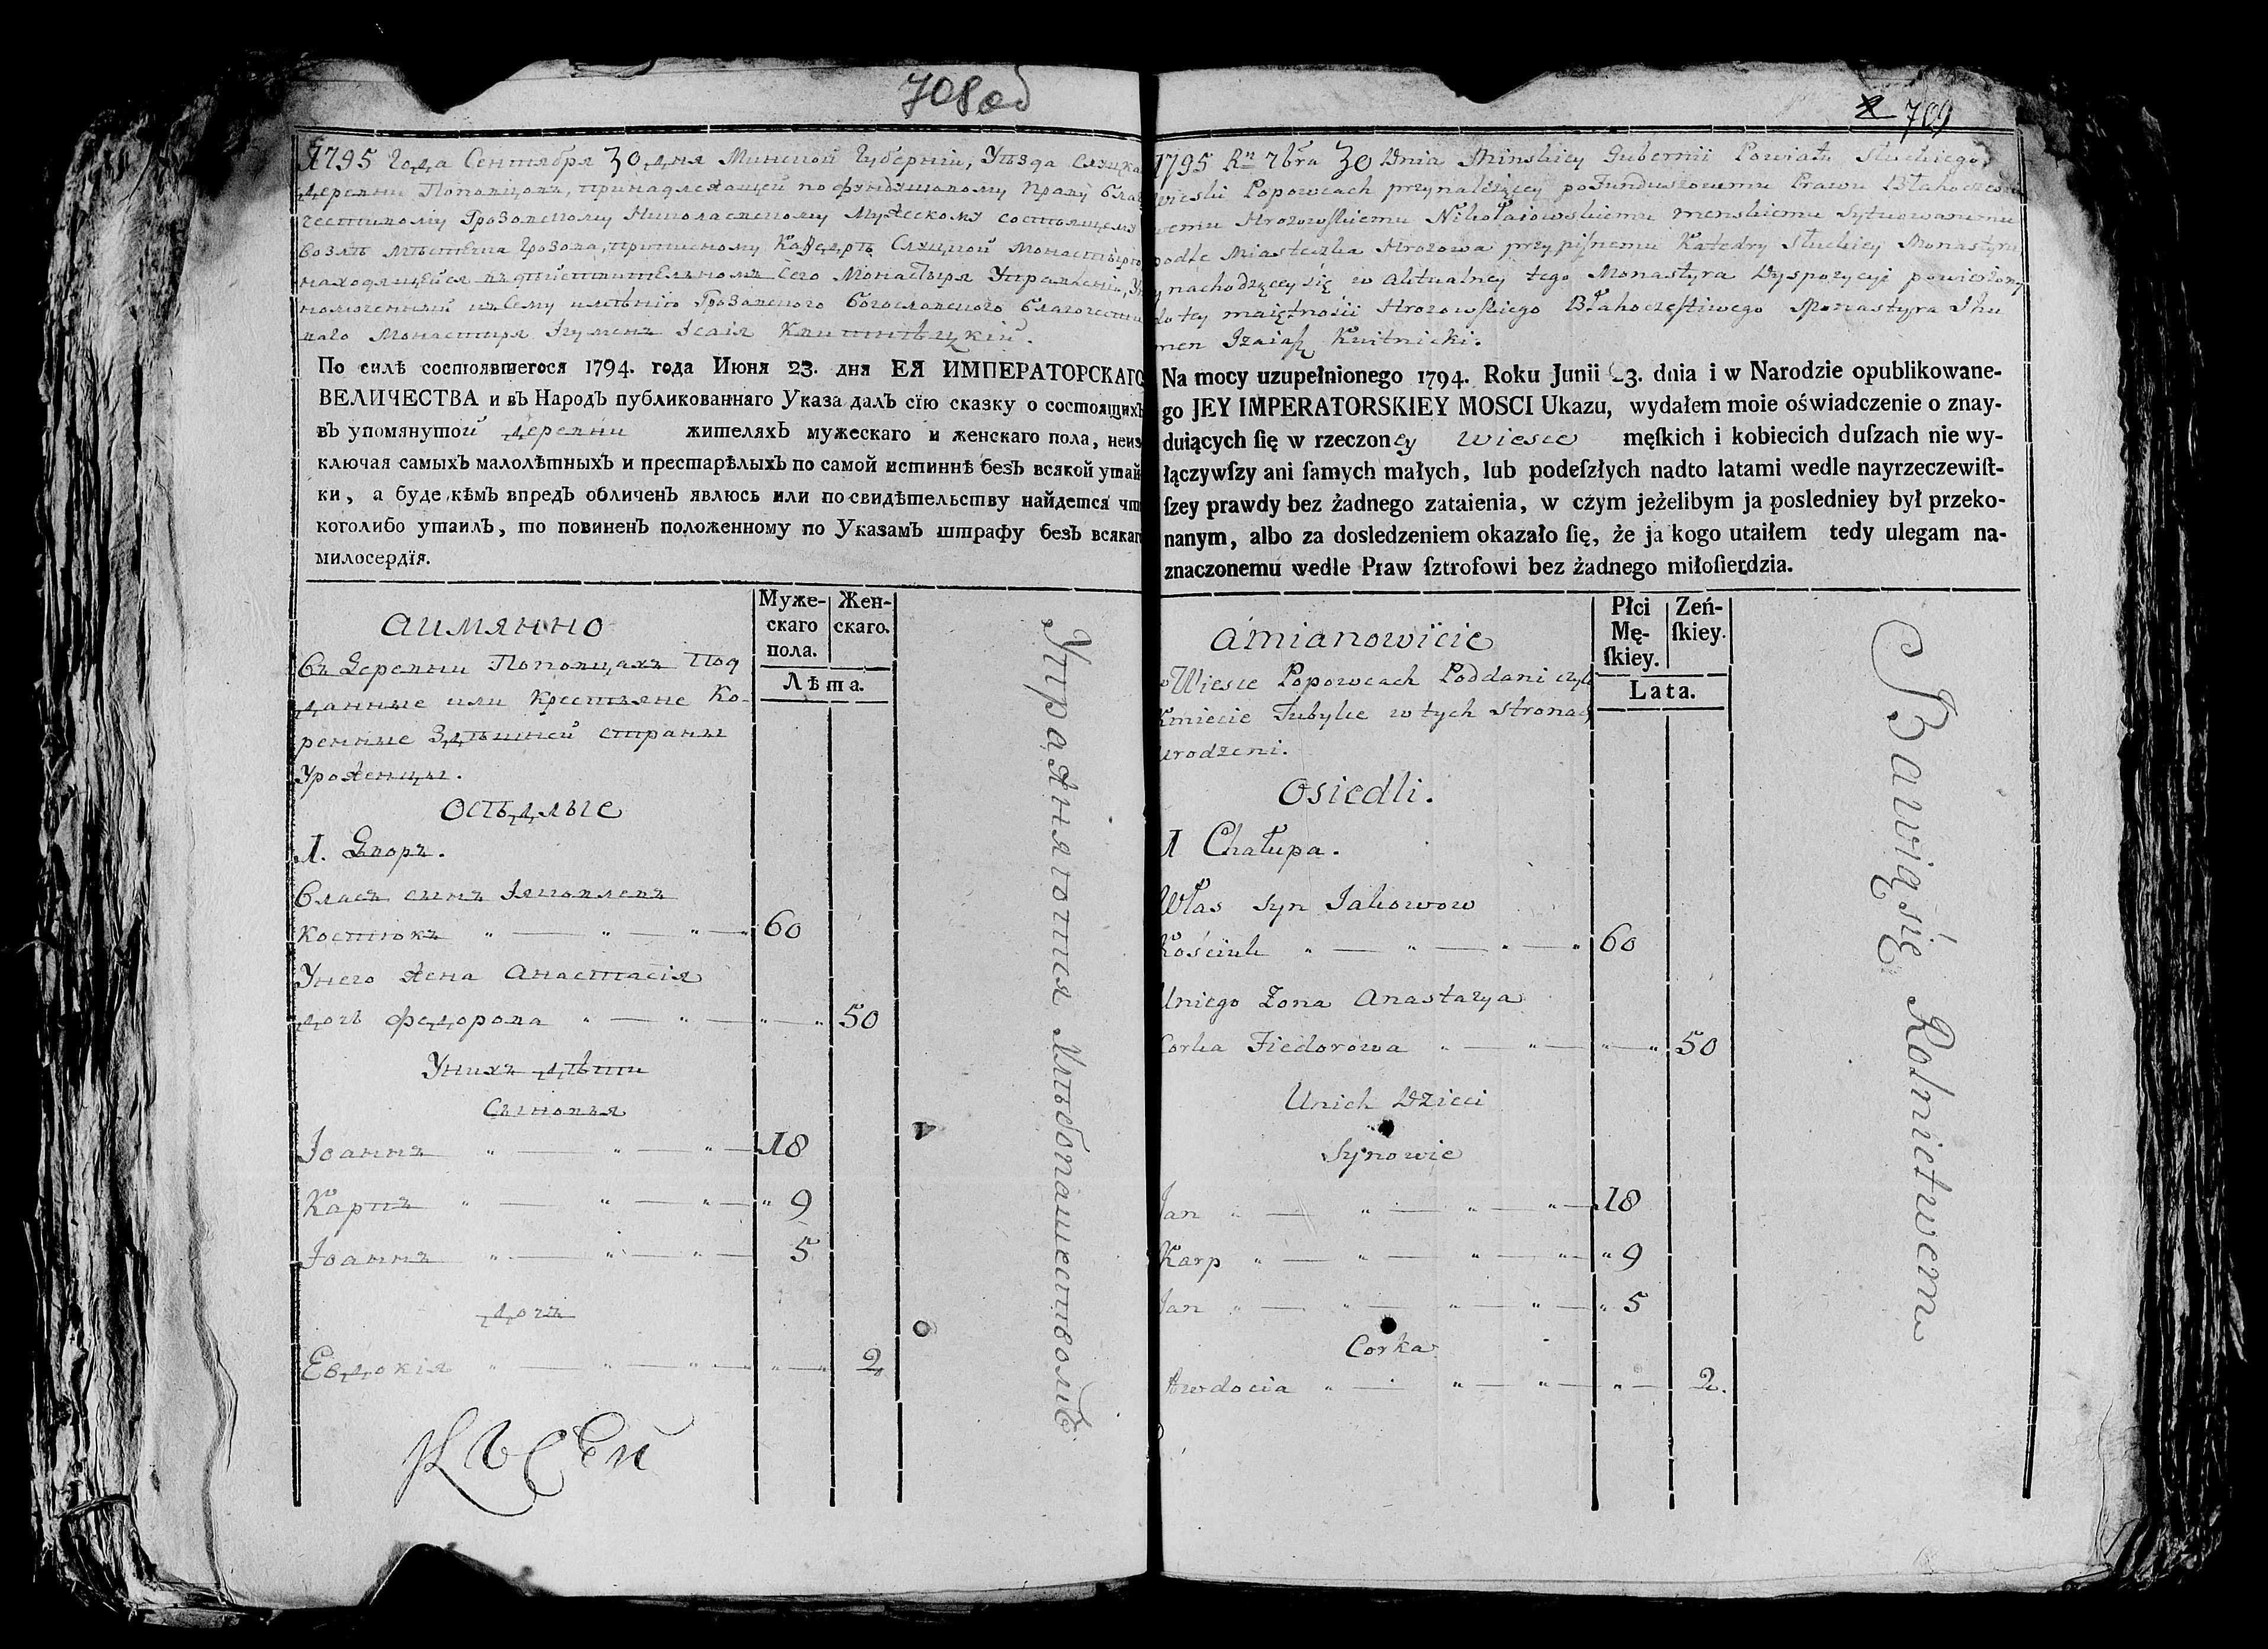 708 об
1795 Года Сентября 30 дня Минской Губерніи, Уѣзда Слуцка
деревни Поповцовъ, принадлежащей по фундушовому праву благо
честивому Грозовскому Николаевскому Мужескому состоящему
возлѣ мѣстечка Грозова, приписному Кафедрѣ Слуцкой Монастырю
находящейся въ дѣйствительномъ сего Монастыря Управленіи, У
полюченный къ сему имѣнію Грозовского Богословского благочести
ваго Монастиря Ігуменъ Ісаія Квитнѣцкій.
По силѣ состоявшегося 1794. года Июня 23. дня ЕЯ ИМПЕРАТОРСКАГО
ВЕЛИЧЕСТВА и въ Народъ публикованнаго Указа далъ сїю сказку о состоящихъ
въ упомянутой деревни жителяхъ мужескаго и женскаго пола, неиз
ключая самыхъ малолѣтныхъ и престарѣлыхъ по самой истиннѣ безъ всякой утай
ки, а буде кѣмъ впредь обличенъ явлюсь или по свидѣтельству найдется чт
коголибо утаилъ, то повиненъ положенному по Указамъ штрафу безъ всякаг
милосердїя.
аимянно
Муже-
скаго
пола.
Жен-
скаго.
Лѣта.
Въ Деревни Поповцахъ Под
данные или Крестьяне Ко-
ренные Здѣшней страны
Уроженцы.
Осѣдлые
1. Дворъ.
Власъ сынъ Іяковлевъ
Костюкъ 60
Унего жена Анастасія
дочь Федорова 50
Унихъ дѣти
Сыновья
Іоаннъ 18
Карпъ 9
Іоаннъ 5
дочь
Евдокія 2
Упражняются хлѣбопашествомъ
709
1795 Rn 7bra 30 Dnia Minskiey Gubernii Powiatu Słuckiego,
wieski Popowcach przynależącey po Funduszowemu Prawu Błahoczesti
wemu Hrozowskiemu Nikołaiowskiemu menskiemu Sytuowanemu
podle Miasteczka Hrozowa przypisnemu Katedry Słuckiey Monastyru
y nachodzącey się w aktualney tego Monastyra Dyspozycyi powierzony
do tey maiętności Hrozowskiego Błahoczestiwego Monastyra Ihu
men Izaiasz Kwitnicki.
Na mocy uzupełnionego 1794. Roku Junii 23. dnia i w Narodzie opublikowane-
go JEY IMPERATORSKIEY MOSCI Ukazu, wydałem moie oświadczenie o znay-
duiących ſię w rzeczoney wiesce męſkich i kobiecich duſzach nie wy-
łączywſzy ani ſamych małych, lub podeſzłych nadto latami wedle nayrzeczewiſt-
ſzey prawdy bez żadnego zataienia, w czym jeżelibym ja posledniey był przeko-
nanym, albo za dosledzeniem okazało ſię, że ja kogo utaiłem tedy ulegam na-
znaczonemu wedle Praw ſztrofowi bez żadnego miłoſierdzia.
amianowicie
Płci
Mę-
ſkiey.
Zeń-
ſkiey.
Lata.
w Wiesce Popowcach Poddani czyli
Kmiecie Tubylce w tych stronach
urodzeni.
Osiedli.
1 Chałupa.
Włas Syn Jakowow
Kościuk 60
Uniego Zona Anastazya
Corka Fiedorowa 50
Unich Dzieci
Synowie
Jan 18
Karp 9
Jan 5
Corka
Awdocia 2.
Bawią się Rolnictwem